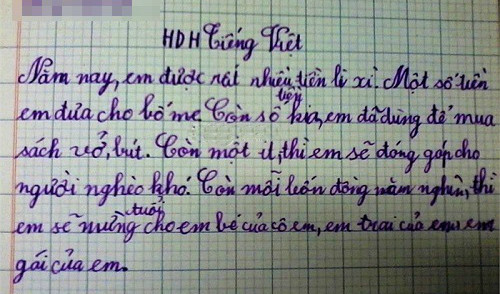 HDH Tiếng Việt
Năm nay, em được rất nhiều tiền lì xì. Một số tiền
em đưa cho bố mẹ. Còn số tiền kia, em đã dùng để mua
sách vở, bút. Còn một ít, thì em sẽ đóng góp cho
người nghèo khó. Còn mỗi bốn đồng năm nghìn, thì
em sẽ mừng tuổi cho em bé của cô em, em trai của em, em
gái của em.